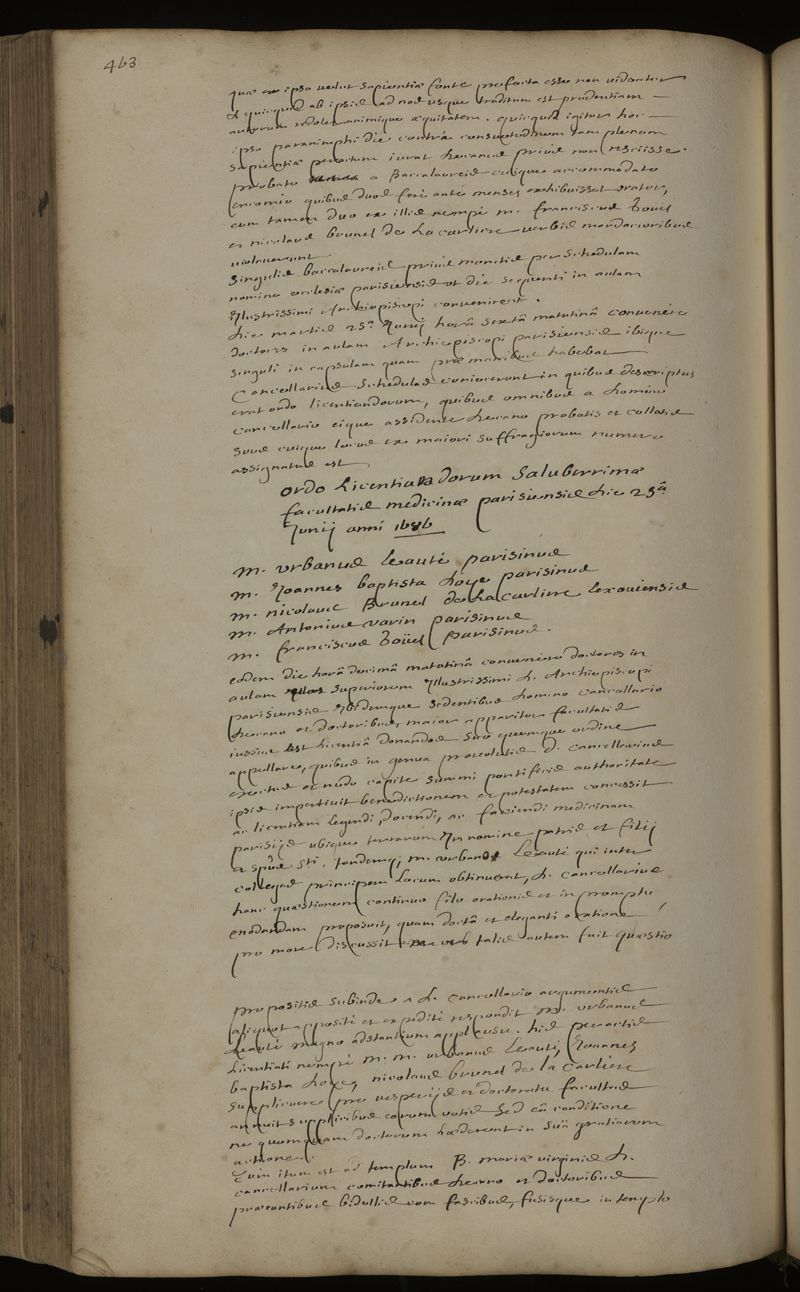 463
quae ex ipso velut sapientiae fonte profecta esse non videantur
et quicquid ab ipsis ad nos usque traditum est prudentiam
auctorum redolet animique aequitatem. quicquid igitur hoc
ipso paranimphi die contra consuetudinem tam plenam
sapientiae peractum iurat decanus prius non rescisse.
probato a Baccalaureis cuique accommodato
encomio quibus duos fere ante menses exhibuisset orator,
cum tamen duo ex illis nempe m. franciscus Toüel
et nicolaus brunel De La carliere verbis mordacioribus
violaverint.
Singulis baccalaureis prius monitis per schedulam
nomine ecclesiae parisiensis ut die sequenti in aulam
Illustrissimi Archiepiscopi convenirent.
hic martis 25a Junij horâ sextâ matutinâ convenêre
doctores in aulam Archiepiscopi parisiensis ibique
singuli in capsulam quam prae manibus habebat
Cancellarius schedulas coniecerunt in quibus descriptus
erat ordo licentiandorum, quibus omnibus a domino
cancellario eique assidente decano probatis et collatis
suus cuique locus ex maiori suffragiorum numero
assignatus est
ordo Licentiandorum Saluberrimae
facultatis medicinae parisiensis die 25a
Junij anni 1686
m. vrbanus Leauté parisinus
m. Joannes baptista Doye parisinus
m. nicolaus Brunel de La Carliere Lexouiensis
m. Antonius varin parisinus
m. franciscus Toüel parisinus.
eodem die horâ decimâ matutinâ convenêre doctores in
aulam superiorem Illustrissimi d. Archiepiscopi
parisiensis Ibidemque sedentibus domino cancellario
decano et doctoribus, maior apparitor facultatis
iussus est licentiâ donandos suo quemque ordine
appellare, quibus in genua provolutis d. cancellarius
erectus et nudo capite summi pontificis authoritate
ipsis impertiuit benedictionem et potestatem concessit
ac licentiam legendi, docendi, ac faciendi medicinam
parisijs ubique terrarum In nomine patris et filij
et spus sti. tandemq; m. vrbano Leauté qui inter
collegas principem Locum obtinuerat, d. cancellarius
hanc quaestionem continuo filo orationis et in promptu
enodandam proposuit, quam doctâ et eleganti oratione
pro more discussit talis autem fuit quaestio
propositis subinde a d. cancellario argumentis
aliquot apposite et expedite respondit m. vrbanus
Leauté magno adstantium applausu. his peractis
Licentiati nempe m. m. vrbanus Leauté, Joannes
baptista Doye, nicolaus brunel de la Carliere
supplicuere pro vesperijs et doctoratu facultas
annuit supplicibus eorum votis sed eâ conditione
ne quemquam doctorum laederent in suâ gratiarum
actione.
Tum itum est ad templum B. mariae virginis d.
cancellarium comitantibus decano et doctoribus
praeeuntibus bidellis cum fascibus, fusisque in templo